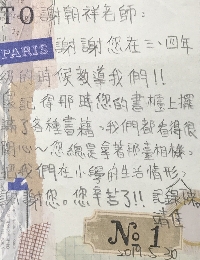 TO 謝朝祥老師：
PARIS
謝謝您在三、四年
級的時候教導我們!!
記得那時您的書櫃上擺
滿了各種書籍，我們都看得很
開心~您總是拿著那臺相機，
把我們在小學的生活情形，
謝謝您。您辛苦了!!
№ 1
2019.5.30